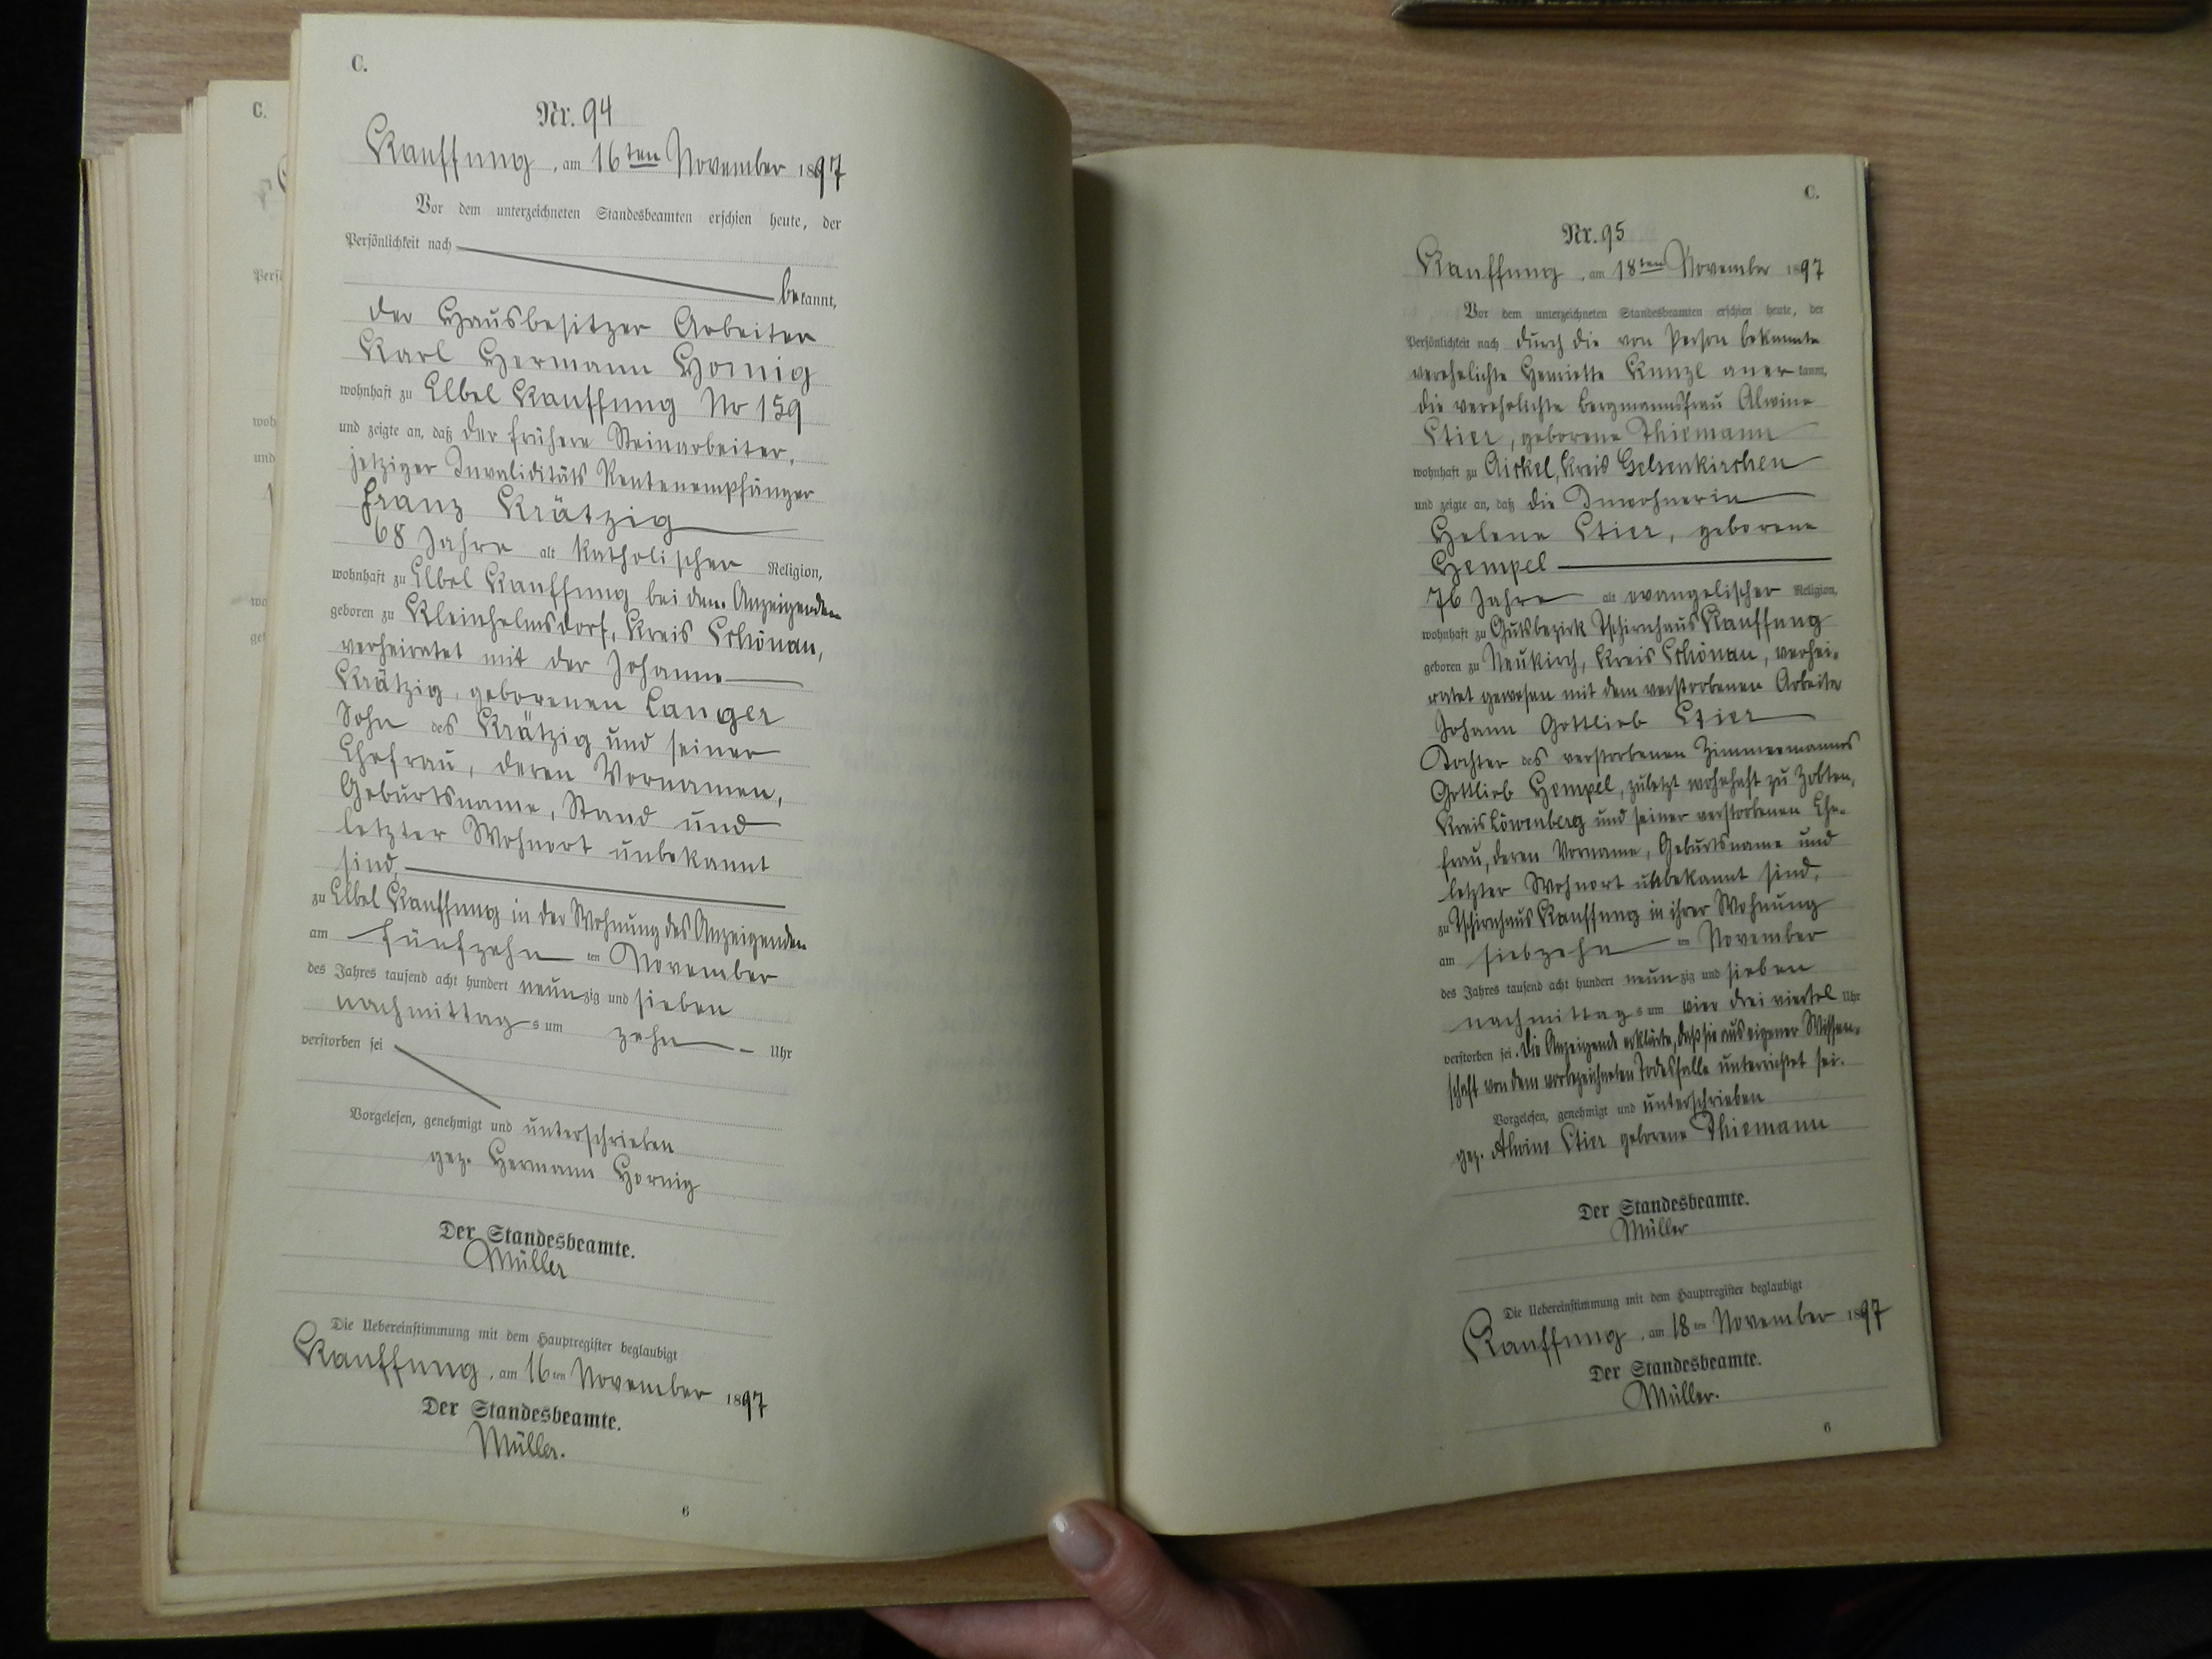 C.
Nr. 94
Kauffung, am 16ten November 1897
Vor dem unterzeichneten Standesbeamten erschien heute, der
Persönlichkeit nach
bekannt,
der Hausbesitzer Arbeiter
Karl Hermann Hornig
wohnhaft zu Elbel Kauffung No 159
und zeigte an, daß der frühere Steinarbeiter,
jetziger Invaliditäts Rentenempfänger
Franz Krätzig
68 Jahre alt katholischer Religion,
wohnhaft zu Elbel Kauffung bei dem Anzeigenden
geboren zu Kleinhelmsdorf, Kreis Schönau,
verheiratet mit der Johanne
Krätzig, geborenen Langer
Sohn des Krätzig und seiner
Ehefrau, deren Vornamen,
Geburtsname, Stand und
letzter Wohnort unbekannt
sind,
zu Elbel Kauffung in der Wohnung des Anzeigenden
am fünfzehn ten November
des Jahres tausend acht hundert neunzig und sieben
nachmittags um zehn Uhr
verstorben sei
Vorgelesen, genehmigt und unterschrieben
gez. Hermann Hornig
Der Standesbeamte.
Müller
Die Uebereinstimmung mit dem Hauptregister beglaubigt
Kauffung, am 16ten November 1897
Der Standesbeamte.
Müller.
6
C.
Nr. 95
Kauffung, am 18ten November 1897
Vor dem unterzeichneten Standesbeamten erschien heute, der
Persönlichkeit nach durch die von Person bekannte
verehelichte Henriette Kunzl anerkannt,
die verehelichte Bergmannsfrau Alwine
Stier, geborene Thiemann
wohnhaft zu Kreis Gelsenkirchen
und zeigte an, daß die Inwohnerin
Helene Stier, geborene
Hempel
76 Jahre alt evangelischer Religion,
wohnhaft zu Gutsbezirk Tschirnhaus Kauffung
geboren zu Neukirch, Kreis Schönau, verhei-
ratet gewesen mit dem verstorbenen Arbeiter
Johann Gottlieb Stier
Tochter des verstorbenen Zimmermanns
Gottlieb Hempel, zuletzt wohnhaft zu Zobten,
Kreis Löwenberg und seiner verstorbenen Ehe-
frau, deren Vorname, Geburtsname und
letzter Wohnort unbekannt sind,
zu Tschirnhaus Kauffung in ihrer Wohnung
am siebzehn ten November
des Jahres tausend acht hundert neunzig und sieben
nachmittags um vier drei viertel Uhr
verstorben sei. Die Anzeigende erklärte, daß sie aus eigener Wissen-
schaft von dem vorbezeichneten Todesfalle unterrichtet sei.
Vorgelesen, genehmigt und unterschrieben
gez. Alwine Stier geborene Thiemann
Der Standesbeamte.
Müller
Die Uebereinstimmung mit dem Hauptregister beglaubigt
Kauffung, am 18ten November 1897
Der Standesbeamte.
Müller.
6